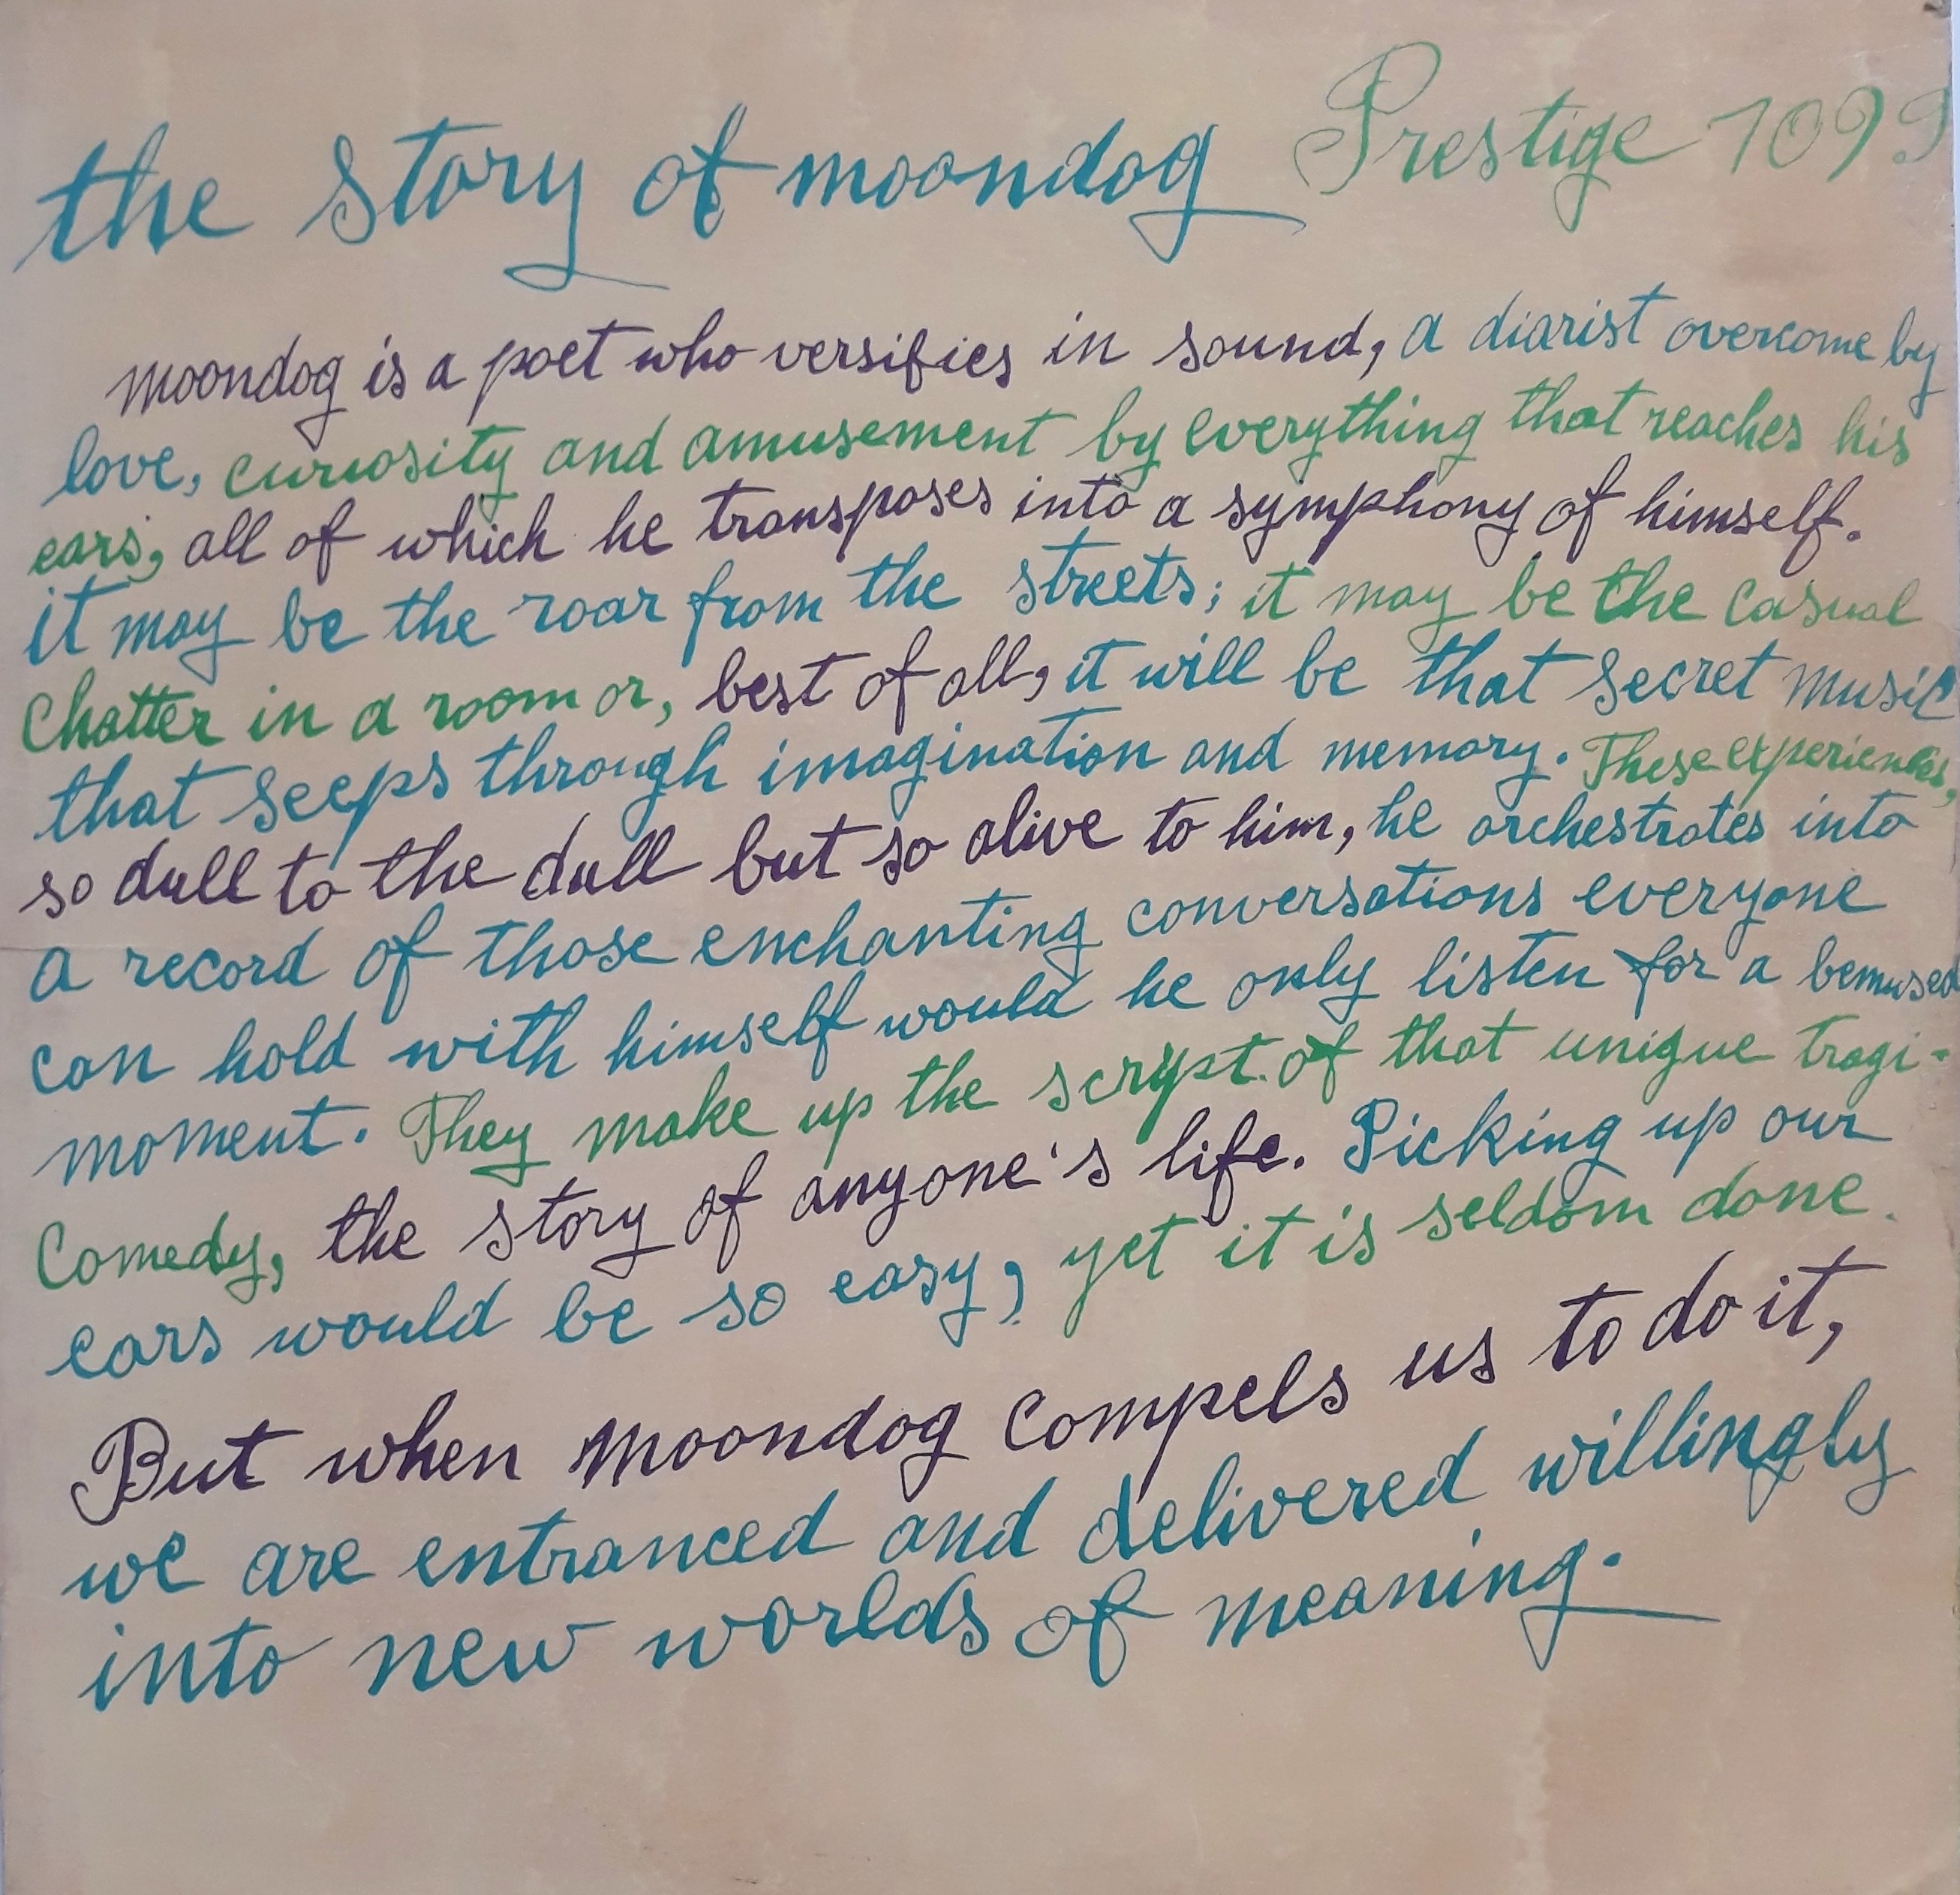 the story of moondog Prestige 1099
moondog is a poet who versifies in sound, a diarist overcome by
love, curiosity and amusement by everything that reaches his
ears, all of which he transposes into a symphony of himself.
it may be the roar from the streets; it may be the casual
Chatter in a room or, best of all, it will be that secret music
that seeps through imagination and memory. These experiences,
so dull to the dull but so alive to him, he orchestrates into
a record of those enchanting conversations everyone
can hold with himself would he only listen for a bemused
moment. They make up the scrypt of that unique tragi-
Comedy, the story of anyone's life. Picking up our
ears would be so easy, yet it is seldom done.
But when moondog compels us to do it,
we are entranced and delivered willingly
into new worlds of meaning.